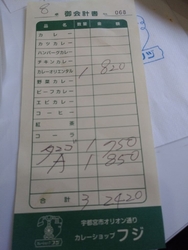 8
御会計書 065
カレー
カツカレー
ハンバーグカレー
チキンカレー
カレーオリエンタル 1 820
野菜カレー
ビーフカレー
エビカレー
コーヒー
紅茶
コーラ
1 750
A 1 850
合計 3 2420
宇都宮市オリオン通り
カレーショップ フジ